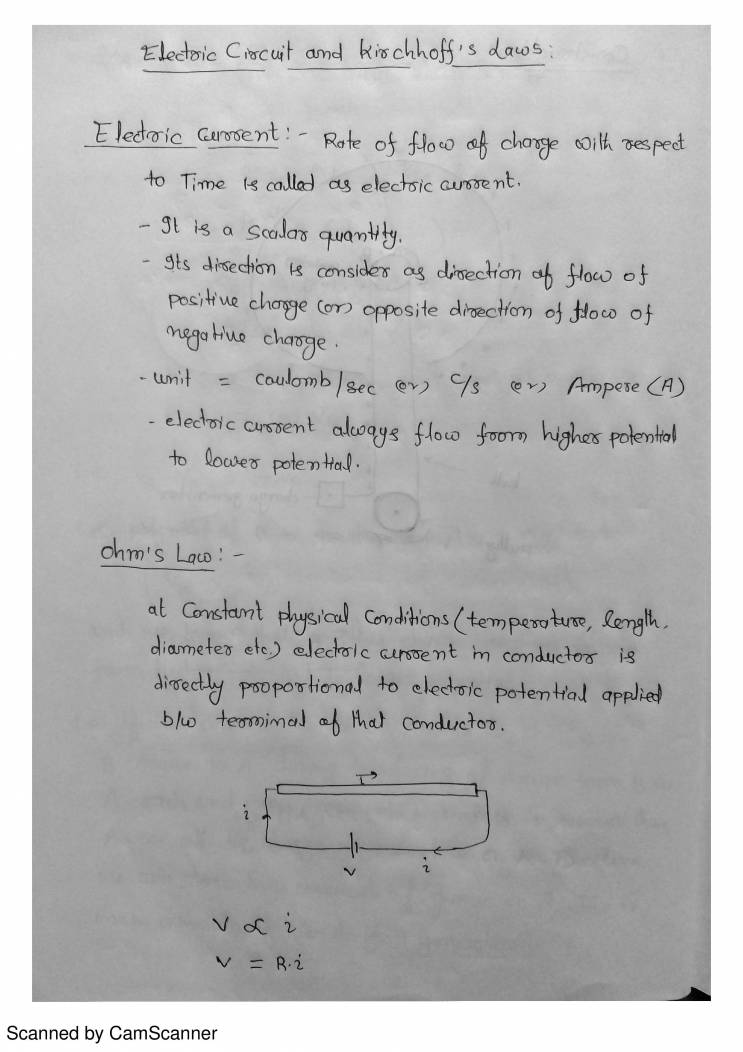 Electric Circuit and Kirchhoff's Laws:
Electric Current :- Rate of flow of charge with respect
to Time is called as electric current.
- It is a Scalar quantity.
- Its direction is consider as direction of flow of
positive charge (or) opposite direction of flow of
negative charge.
- unit = coulomb/sec (or) C/s (or) Ampere (A)
- electric current always flow from higher potential
to lower potential.
Ohm's Law :-
at Constant physical Conditions (temperature, length,
diameter etc.) electric current in conductor is
directly proportional to electric potential applied
b/w terminal of that conductor.
I
i
V
i
V ∝ i
V = R.i
Scanned by CamScanner